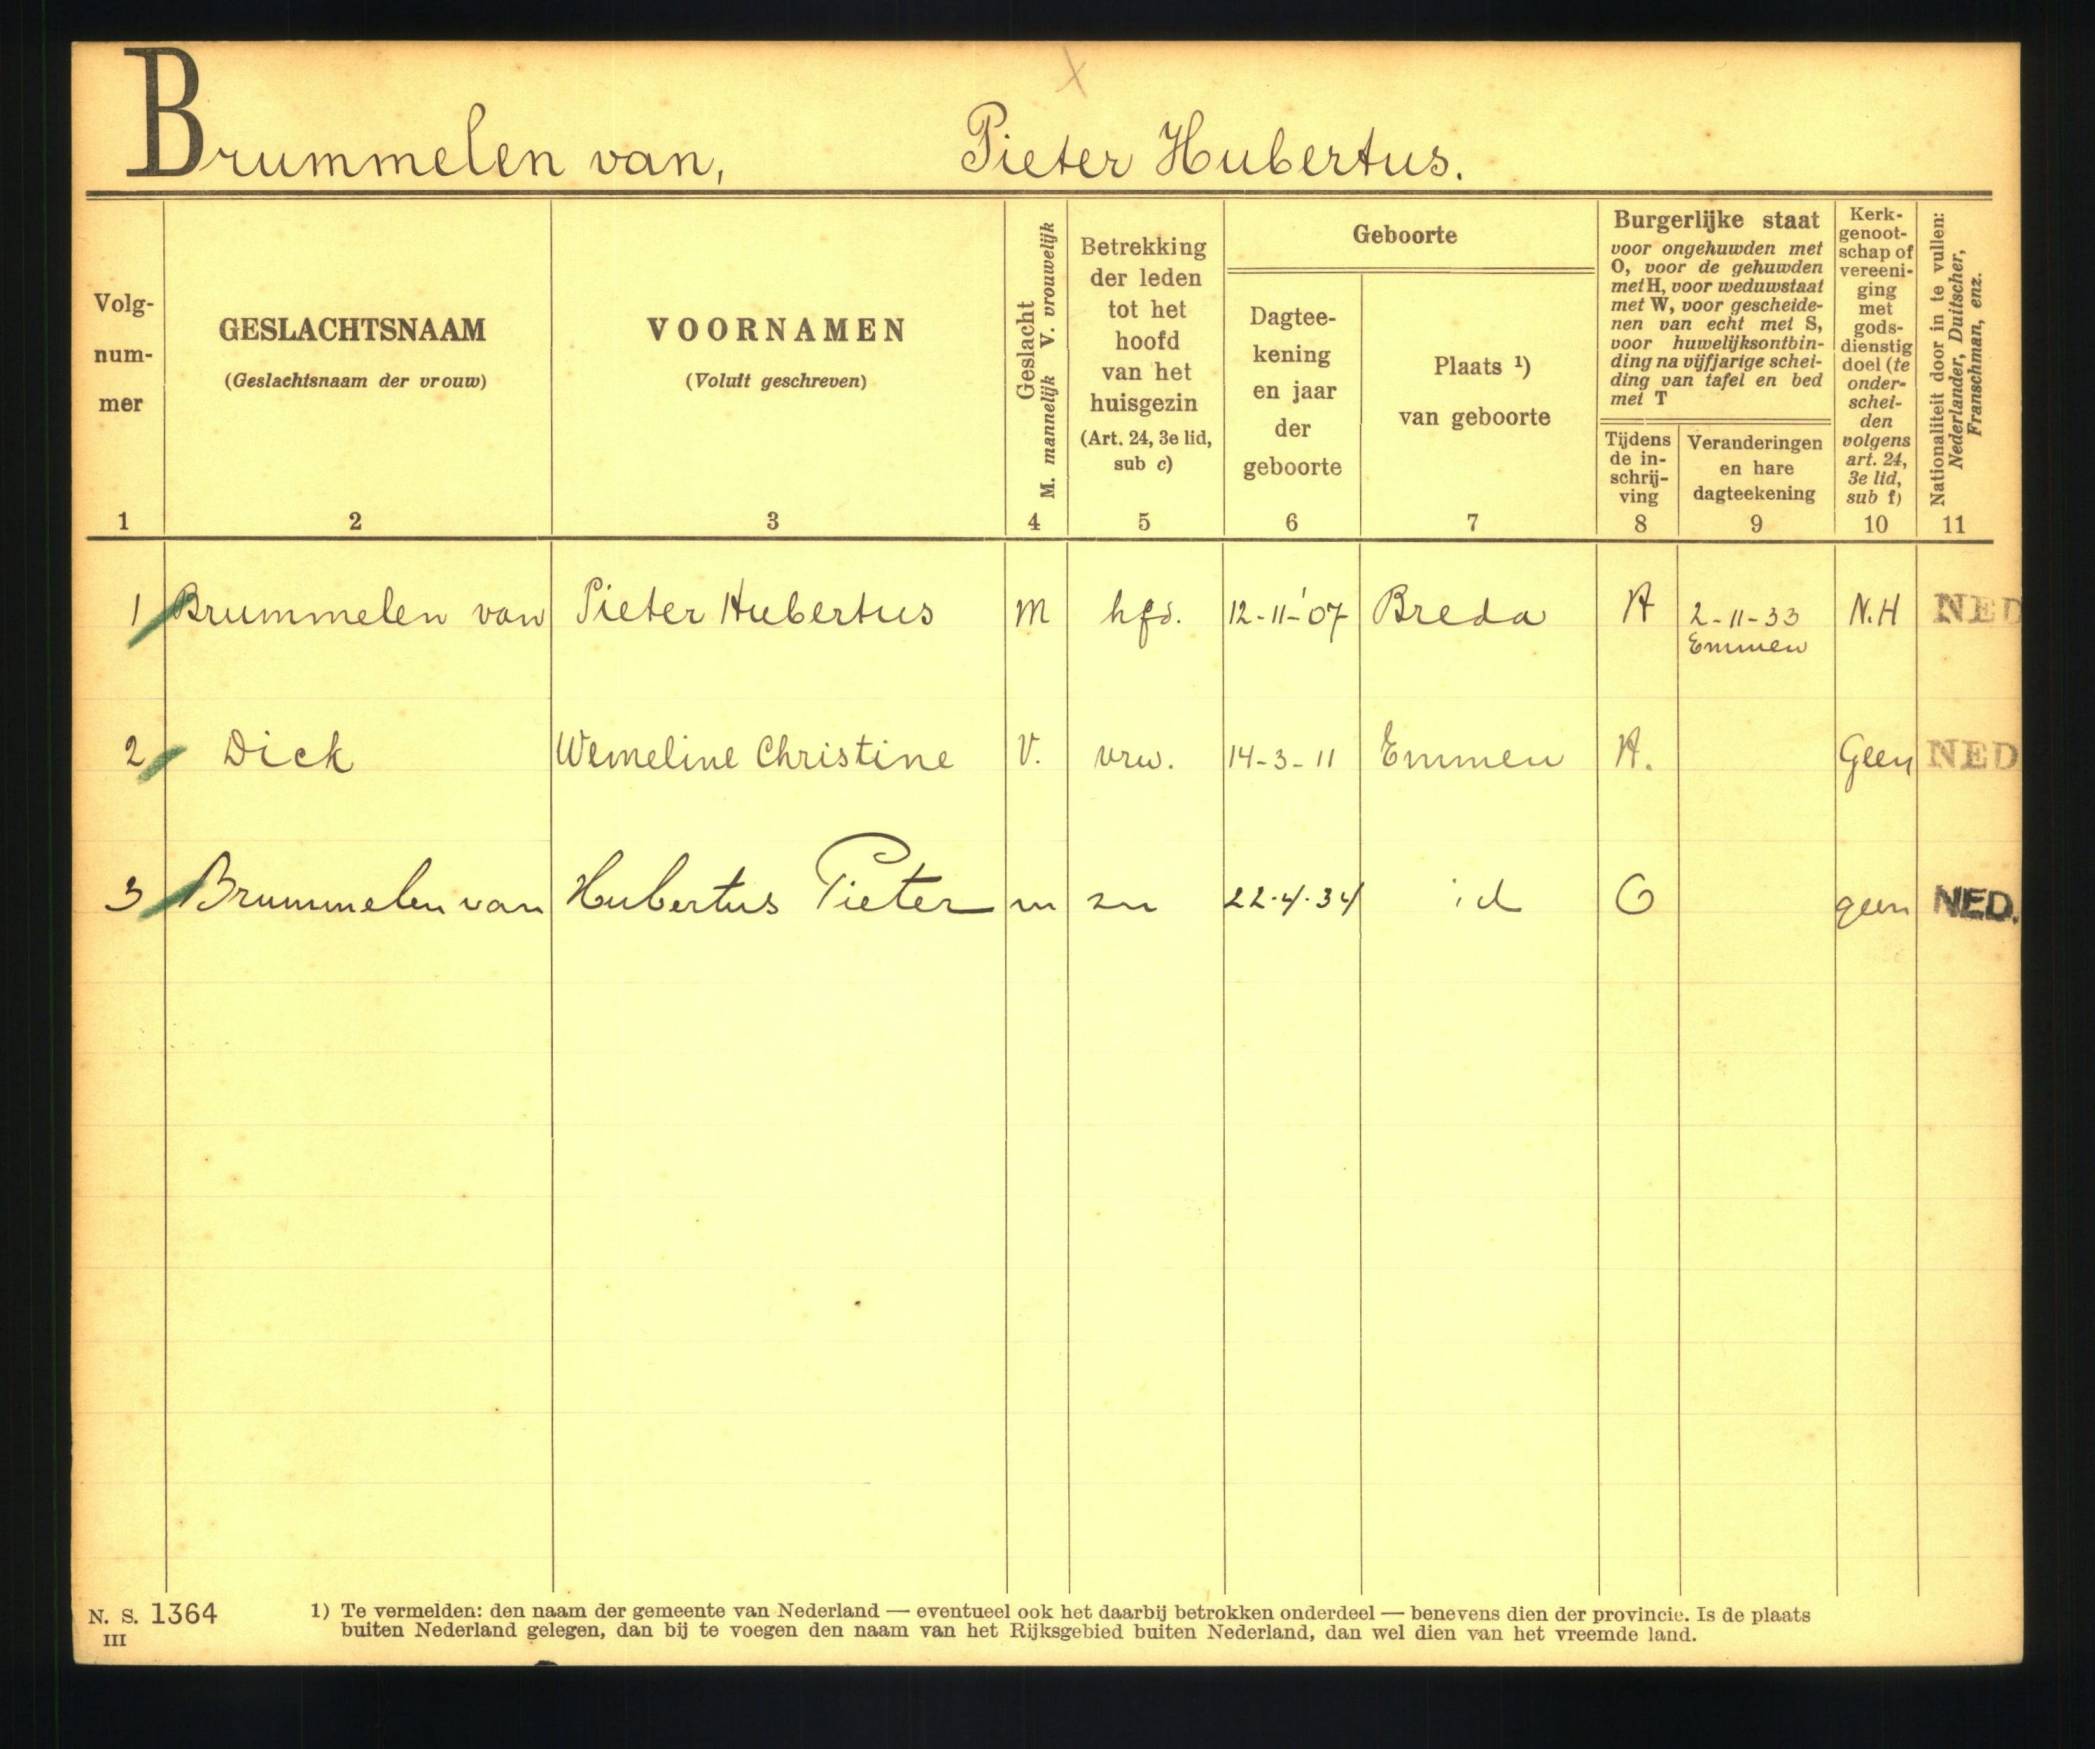 Brummelen van, Pieter Hubertus.
Volg-
num-
mer
1
GESLACHTSNAAM
(Geslachtsnaam der vrouw)
2
VOORNAMEN
(Voluit geschreven)
3
Geslacht
M. mannelijk V. vrouwelijk
4
Betrekking
der leden
tot het
hoofd
van het
huisgezin
(Art. 24, 3e lid,
sub c)
5
Geboorte
Dagtee-
kening
en jaar
der
geboorte
6
Plaats ¹)
van geboorte
7
Burgerlijke staat
voor ongehuwden met
O, voor de gehuwden
met H, voor weduwstaat
met W, voor gescheide-
nen van echt met S,
voor huwelijksontbin-
ding na vijfjarige schei-
ding van tafel en bed
met T
Tijdens
de in-
schrij-
ving
8
Veranderingen
en hare
dagteekening
9
Kerk-
genoot-
schap of
vereeni-
ging
met
gods-
dienstig
doel (te
onder-
schei-
den
volgens
art. 24,
3e lid,
sub f)
10
Nationaliteit door in te vullen:
Nederlander, Duitscher,
Franschman, enz.
11
1 Brummelen van Pieter Hubertus M hfd. 12-11-'07 Breda H 2-11-33 N.H NED
Emmen
2 Dick Wemeline Christine V. vrw. 14-3-11 Emmen H. Geen NED
3 Brummelen van Hubertus Pieter m zn 22.4.34 id O geen NED.
N. S. 1364
III
1) Te vermelden: den naam der gemeente van Nederland — eventueel ook het daarbij betrokken onderdeel — benevens dien der provincie. Is de plaats
buiten Nederland gelegen, dan bij te voegen den naam van het Rijksgebied buiten Nederland, dan wel dien van het vreemde land.